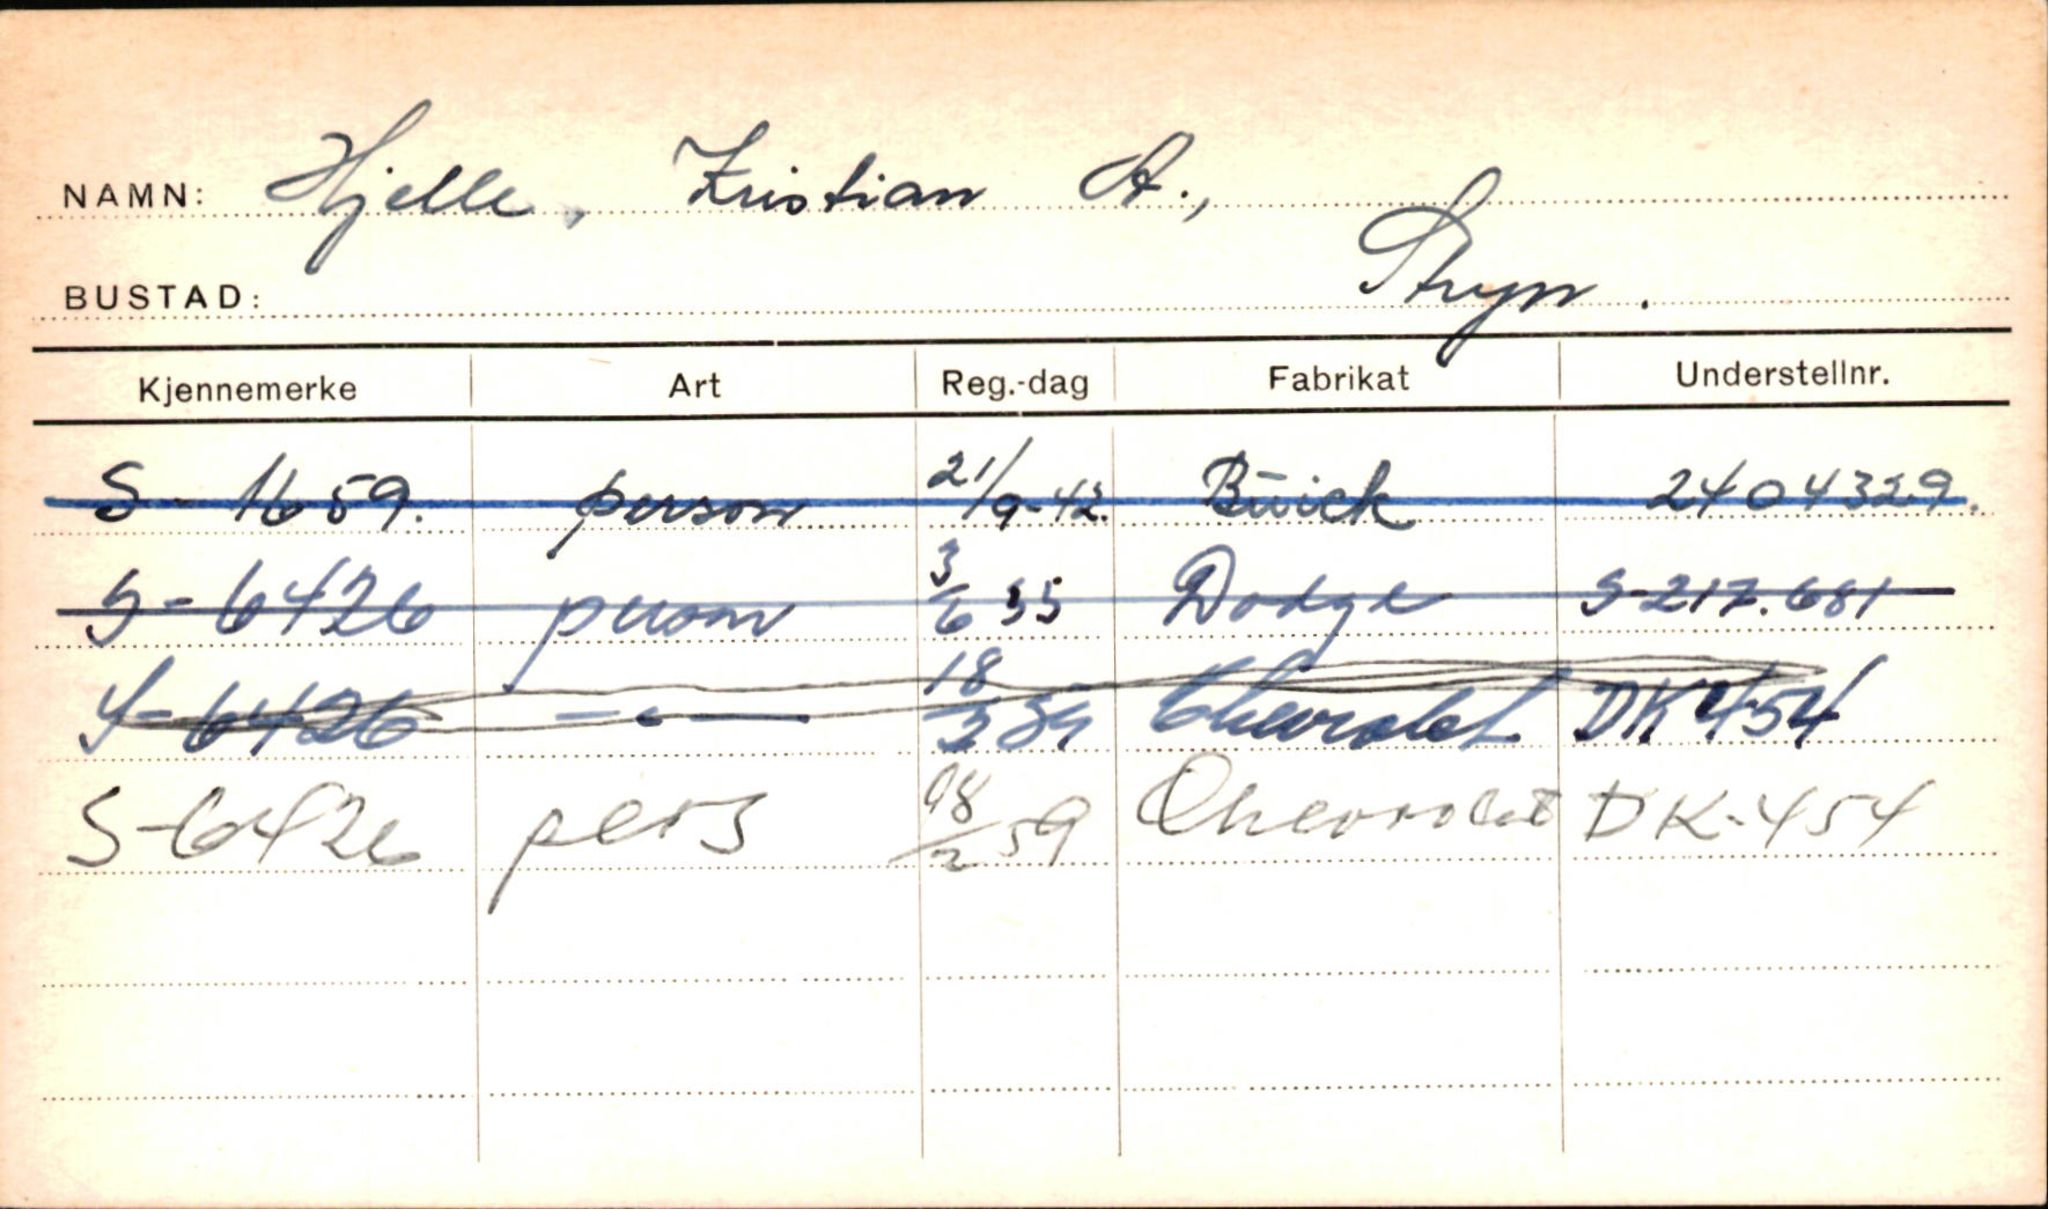 NAMN: Hjelle, Kristian A.,
BUSTAD: Stryn.
Kjennemerke Art Reg.-dag Fabrikat Understellnr.
S-1659. person 21/9-42. Buick 2404329.
S-6426 person 3/6 55 Dodge S-217.681
S-6426 -"- 18/2 59 Chevrolet DK 454
S-6426 pers 18/2 59 Chevrolet DK-454